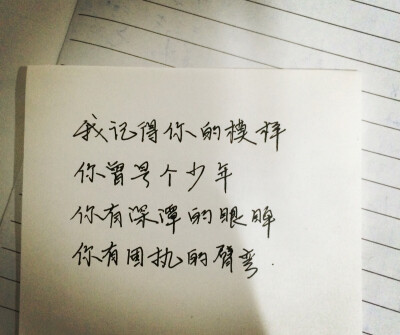 我记得你的模样
你曾是个少年
你有深潭的眼眸
你有固执的臂弯.